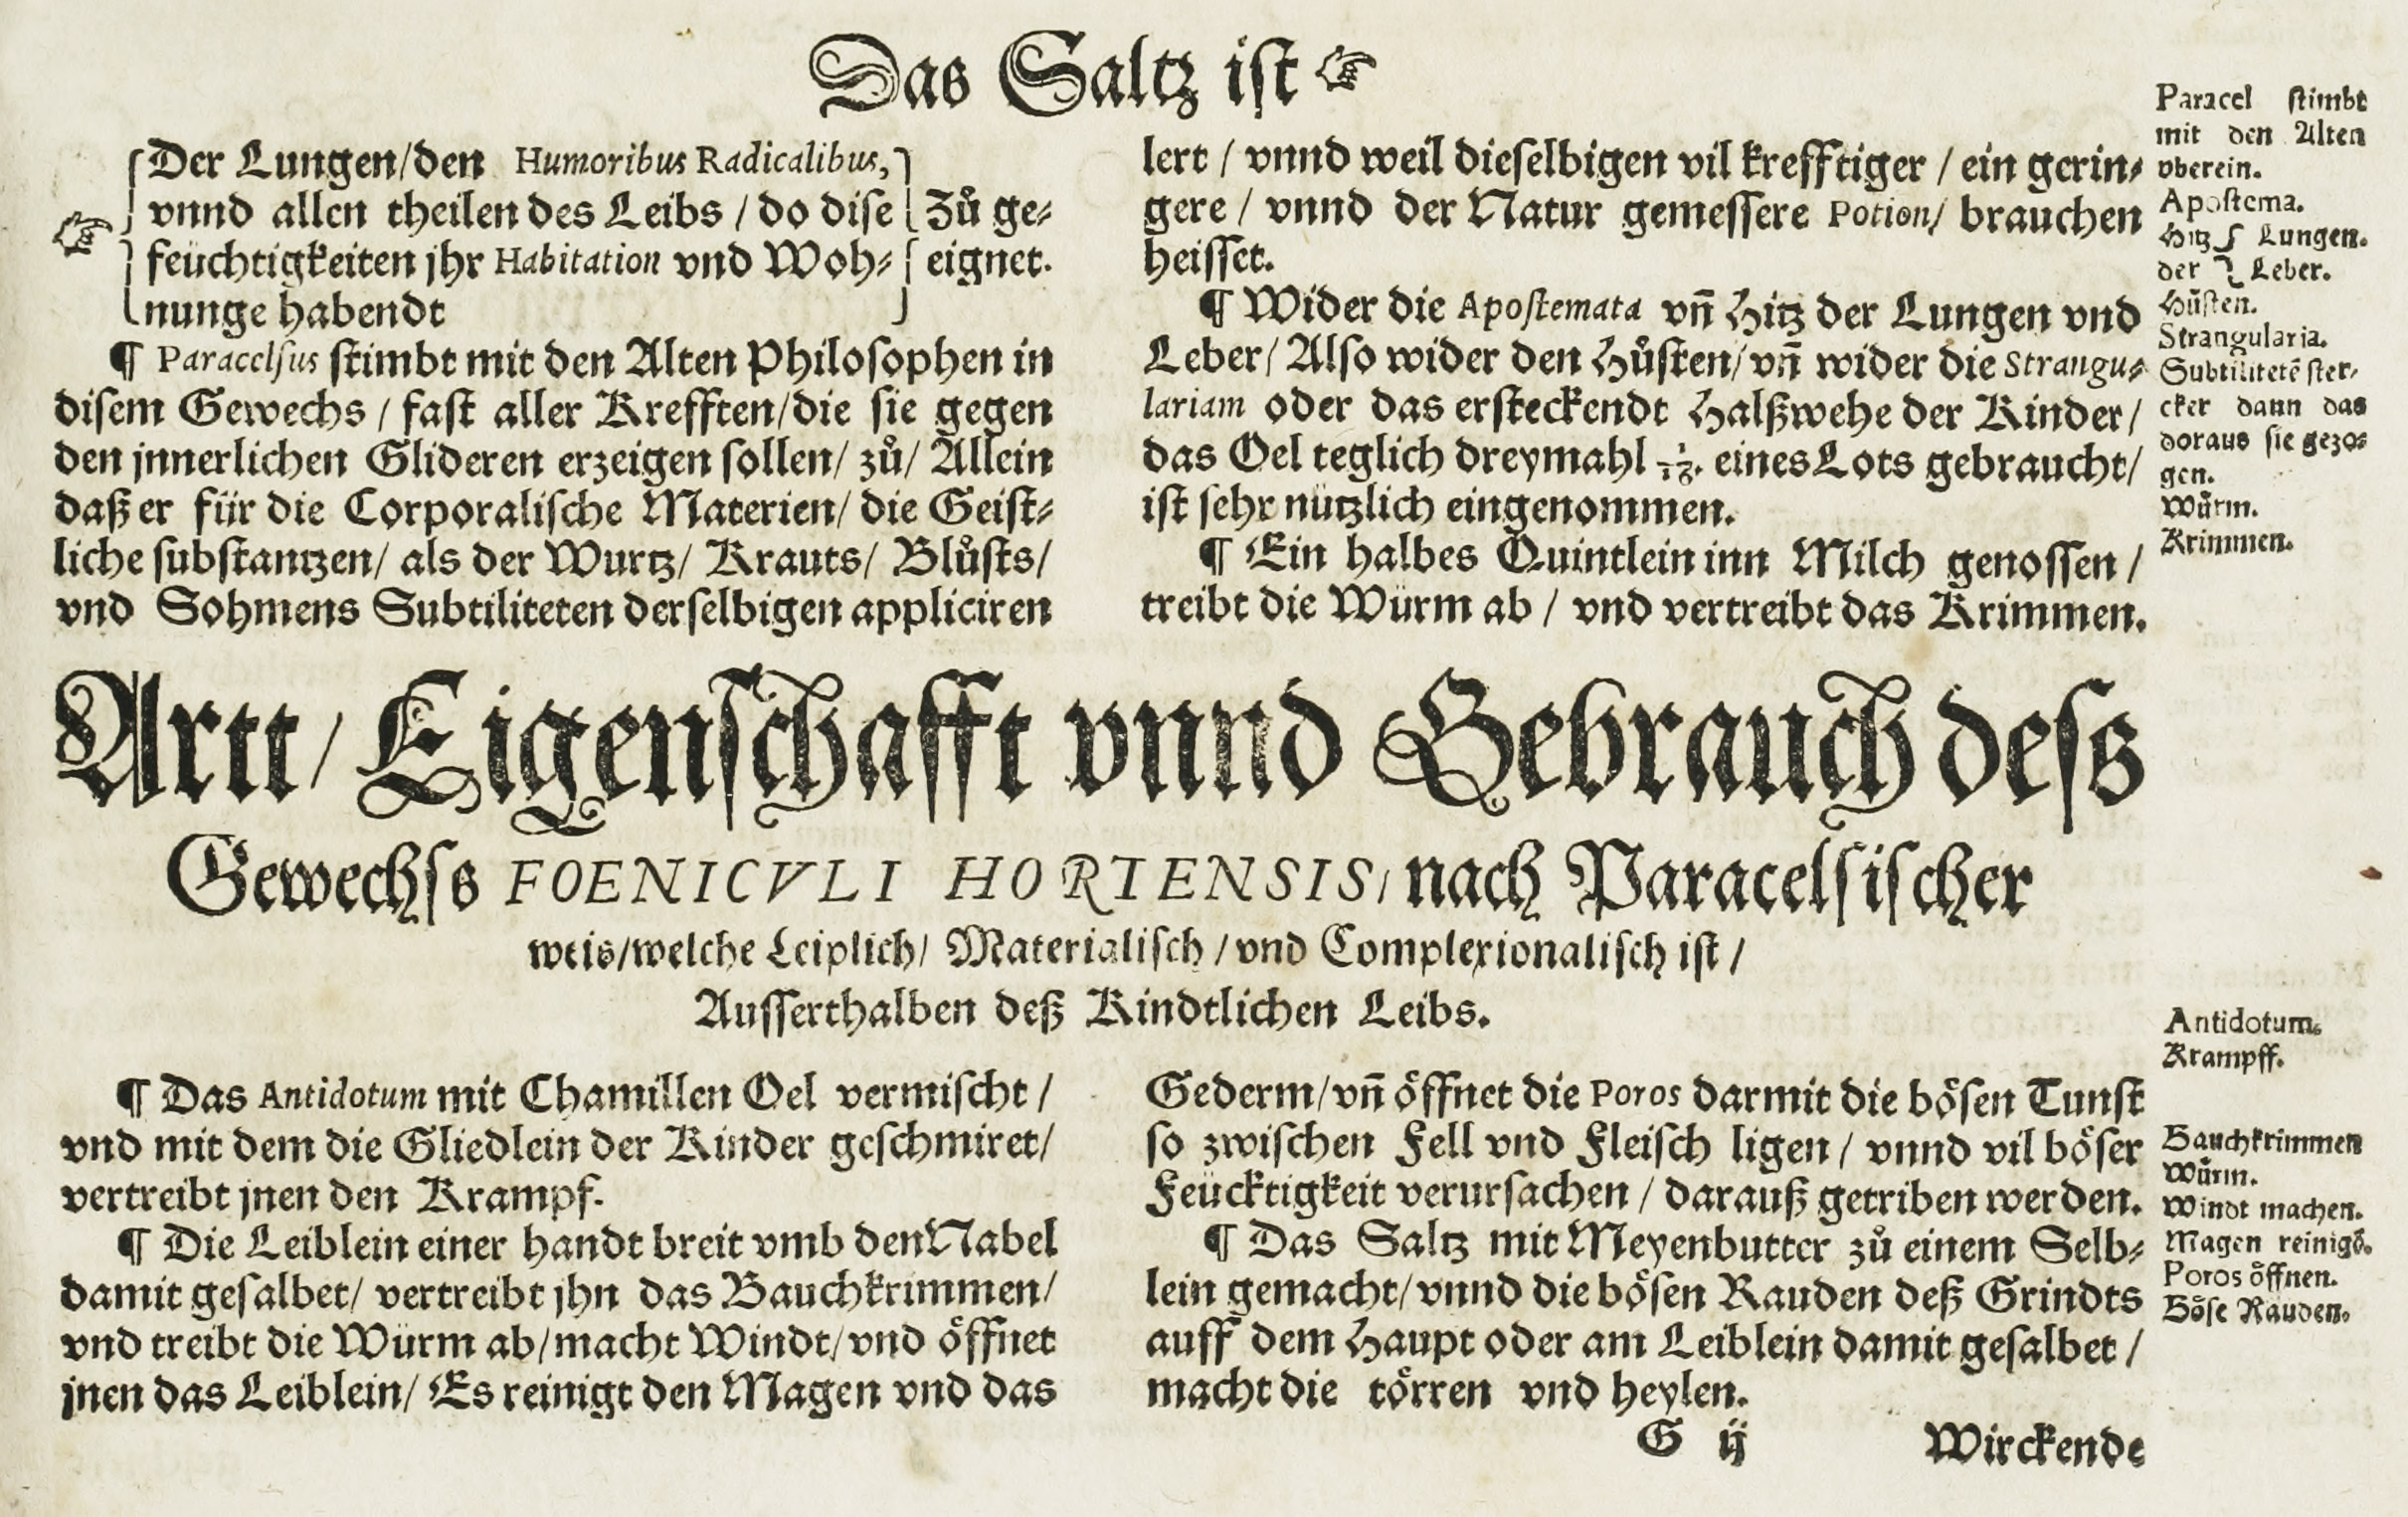 Das Saltz ist ☞
Der Lungen/den Humoribus Radicalibus,
vnnd allen theilen des Leibs / do dise
☞ feüchtigkeiten jhr Habitation vnd Woh⸗
nunge habendt
Zů ge⸗
eignet.
¶ Paracelsus stimbt mit den Alten Philosophen in
disem Gewechs / fast aller Krefften/die sie gegen
den jnnerlichen Glideren erzeigen sollen/ zů/ Allein
daß er für die Corporalische Materien/ die Geist⸗
liche substantzen/ als der Wurtz/ Krauts/ Blůsts/
vnd Sohmens Subtiliteten derselbigen appliciren
lert / vnnd weil dieselbigen vil krefftiger / ein gerin⸗
gere / vnnd der Natur gemessere Potion/ brauchen
heisset.
¶ Wider die Apostemata vn̄ Hitz der Lungen vnd
Leber/ Also wider den Hůsten/ vn̄ wider die Strangu⸗
lariam oder das ersteckendt Halßwehe der Kinder/
das Oel teglich dreymahl eines Lots gebraucht/
ist sehr nützlich eingenommen.
¶ Ein halbes Quintlein inn Milch genossen /
treibt die Würm ab / vnd vertreibt das Krimmen.
Paracel stimbt
mit den Alten
vberein.
Apostema.
Hitz Lungen.
der Leber.
Hůsten.
Strangularia.
Subtilitetē ster⸗
cker dann das
doraus sie gezo⸗
gen.
Wůrm.
Krimmen.
Artt/ Eigenschafft vnnd Gebrauch dess
Gewechss FOENICVLI HORTENSIS, nach Paracelsischer
weis/welche Leiplich/ Materialisch / vnd Complexionalisch ist /
Ausserthalben deß Kindtlichen Leibs.
¶ Das Antidotum mit Chamillen Oel vermischt /
vnd mit dem die Gliedlein der Kinder geschmiret/
vertreibt jnen den Krampf.
¶ Die Leiblein einer handt breit vmb den Nabel
damit gesalbet/ vertreibt jhn das Bauchkrimmen/
vnd treibt die Würm ab/macht Windt/vnd öffnet
jnen das Leiblein/ Es reinigt den Magen vnd das
Gederm/vn̄ öffnet die Poros darmit die bösen Tunst
so zwischen Fell vnd Fleisch ligen / vnnd vil böser
Feücktigkeit verursachen / darauß getriben werden.
¶ Das Saltz mit Meyenbutter zů einem Selb⸗
lein gemacht/ vnnd die bösen Rauden deß Grindts
auff dem Haupt oder am Leiblein damit gesalbet /
macht die törren vnd heylen.
Antidotum.
Krampff.
Bauchkrimmen
Wůrm.
Windt machen.
Magen reinigē.
Poros öffnen.
Böse Rauden.
G ij
Wirckende